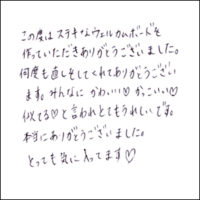 この度はステキなウェルカムボードを
作っていただきありがとうございました。
何度も直しをしてくれてありがとうござい
ます。みんなに かわいい♡ かっこいい
似てる♡ と言われとてもうれしいです。
本当にありがとうございました。
とっても気に入ってます♡